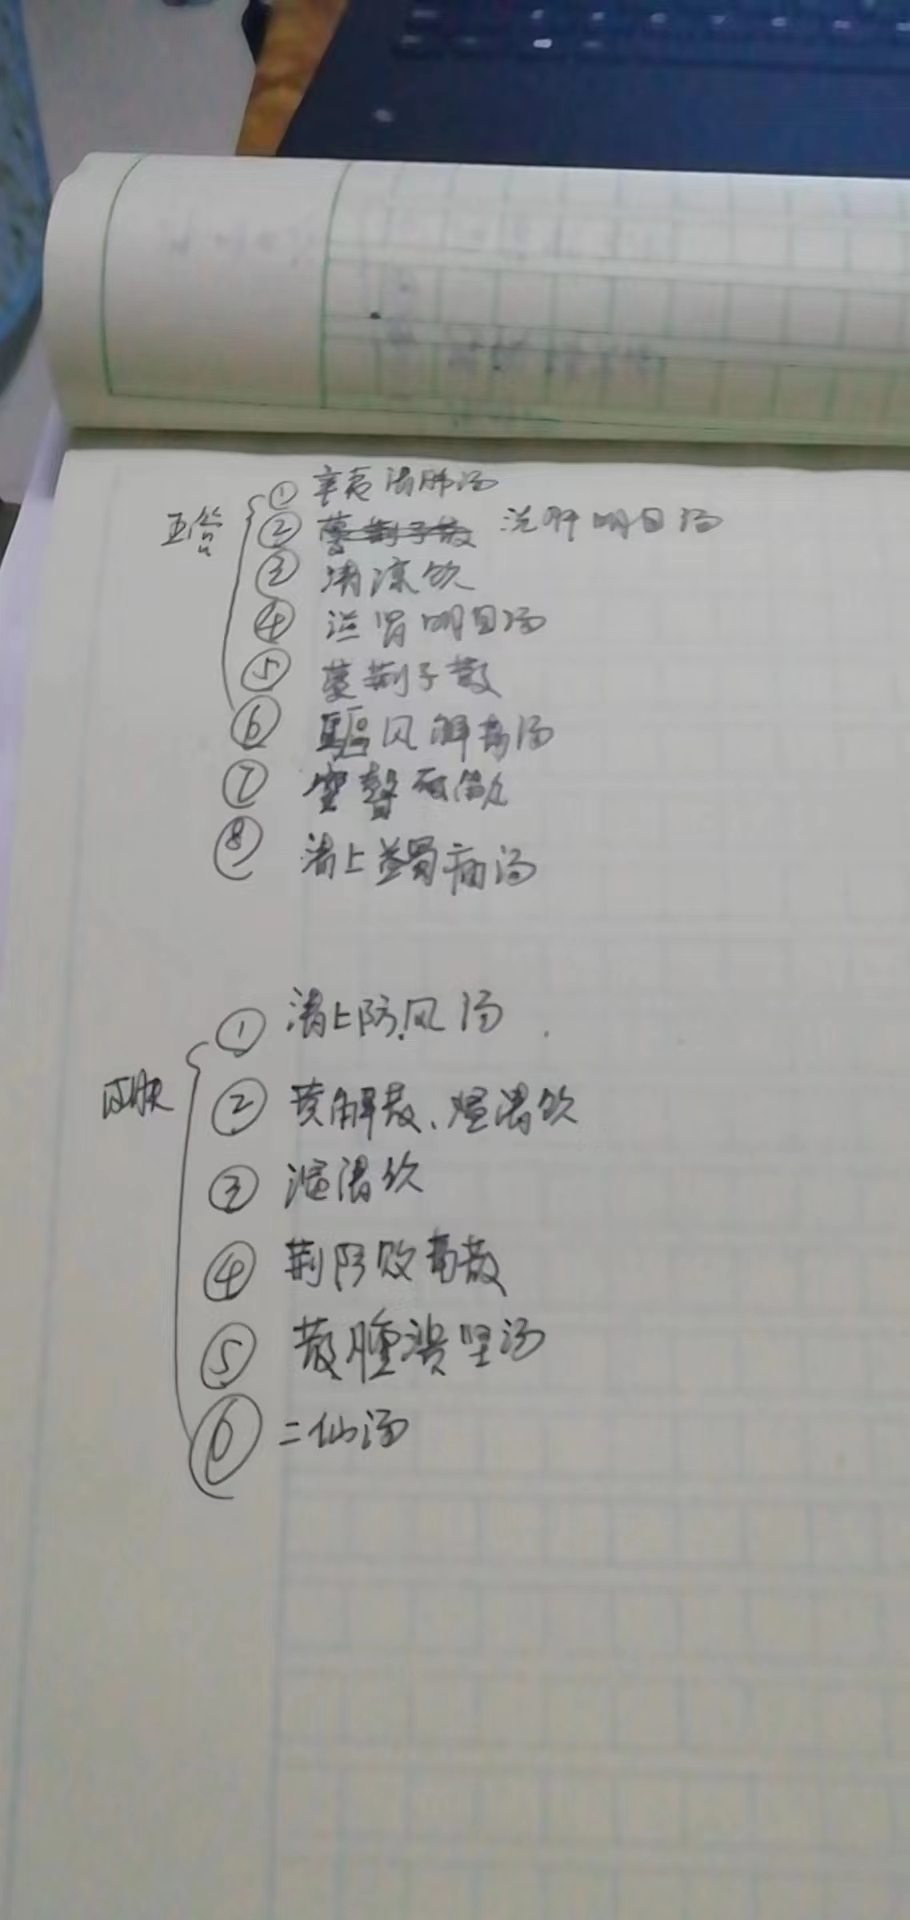 五官
① 辛夷清肺汤
② 蔓荆子散 洗肝明目汤
③ 清凉饮
④ 滋肾明目汤
⑤ 蔓荆子散
⑥ 驱风解毒汤
⑦ 饮
⑧ 清上汤
皮肤
① 清上防风汤.
② 黄解散、温清饮
③ 温清饮
④ 荆防败毒散
⑤ 散腫溃坚汤
⑥ 二仙汤